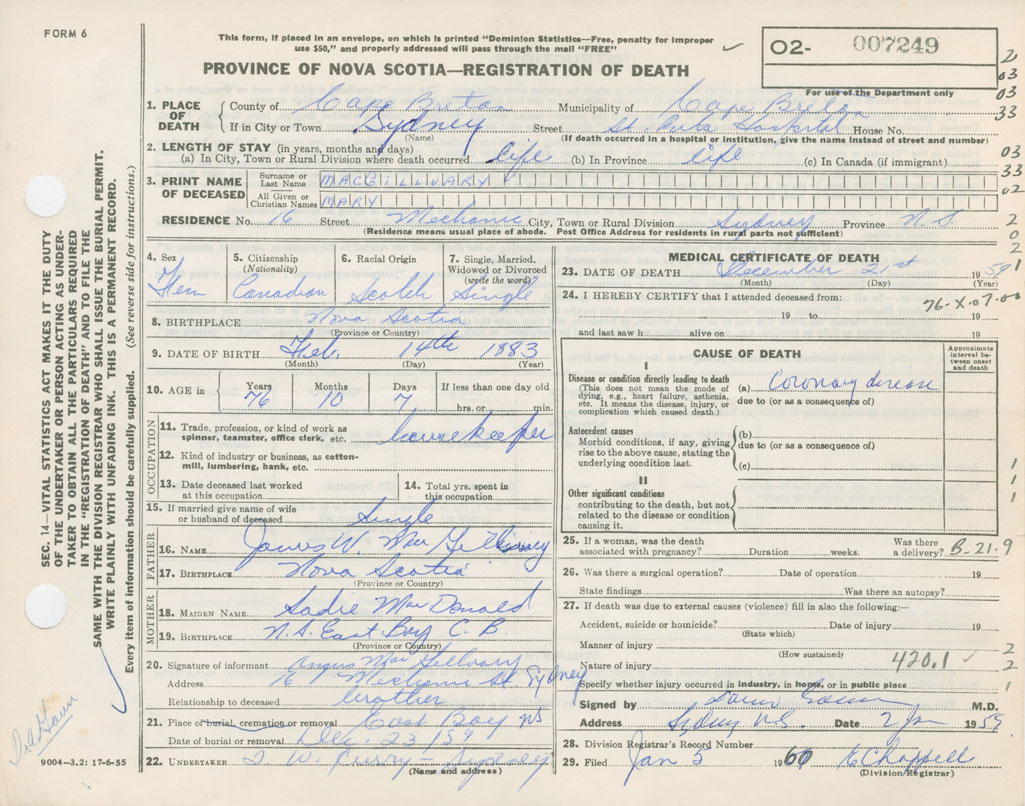 FORM 6
This form, if placed in an envelope, on which is printed "Dominion Statistics—Free, penalty for improper
use $50," and properly addressed will pass through the mail "FREE"
PROVINCE OF NOVA SCOTIA—REGISTRATION OF DEATH
O2- 007249
For use of the Department only
1. PLACE OF DEATH County of Cape Breton Municipality of Cape Breton
If in City or Town Sydney (Name) Street St. Rita Hospital House No.
(If death occurred in a hospital or institution, give the name instead of street and number)
2. LENGTH OF STAY (in years, months and days)
(a) In City, Town or Rural Division where death occurred life (b) In Province life (c) In Canada (if immigrant)
3. PRINT NAME OF DECEASED Surname or Last Name MACGILLVARY
All Given or Christian Names MARY
RESIDENCE No. 16 Street Mechanic City, Town or Rural Division Sydney Province N.S
(Residence means usual place of abode. Post Office Address for residents in rural parts not sufficient)
4. Sex Fem
5. Citizenship (Nationality) Canadian
6. Racial Origin Scotch
7. Single, Married, Widowed or Divorced (write the word) Single
8. BIRTHPLACE Nova Scotia
(Province or Country)
9. DATE OF BIRTH Feb. 14th 1883
(Month) (Day) (Year)
10. AGE in Years 76 Months 10 Days 7 If less than one day old hrs. or min.
OCCUPATION
11. Trade, profession, or kind of work as spinner, teamster, office clerk, etc. housekeeper
12. Kind of industry or business, as cotton-mill, lumbering, bank, etc.
13. Date deceased last worked at this occupation
14. Total yrs. spent in this occupation
15. If married give name of wife or husband of deceased Single
FATHER
16. NAME James W. MacGillivary
17. BIRTHPLACE Nova Scotia
(Province or Country)
MOTHER
18. MAIDEN NAME Sadie MacDonald
19. BIRTHPLACE N.S. East Bay C.B.
(Province or Country)
20. Signature of informant Angus MacGillvary
Address 16 Mechanic St. Sydney
Relationship to deceased brother
21. Place of burial, cremation or removal East Bay NS
Date of burial or removal Dec. 23/59
22. UNDERTAKER T. W. Curry - Sydney
(Name and address)
MEDICAL CERTIFICATE OF DEATH
23. DATE OF DEATH December 21st 1959
(Month) (Day) (Year)
24. I HEREBY CERTIFY that I attended deceased from: 76-X-07-00
19 to 19
and last saw h alive on 19
CAUSE OF DEATH
Approximate interval between onset and death
I
Disease or condition directly leading to death (a) Coronary disease
(This does not mean the mode of dying, e.g., heart failure, asthenia, etc. It means the disease, injury, or complication which caused death.)
due to (or as a consequence of)
Antecedent causes (b)
Morbid conditions, if any, giving rise to the above cause, stating the underlying condition last.
due to (or as a consequence of)
(c)
II
Other significant conditions
contributing to the death, but not related to the disease or condition causing it.
25. If a woman, was the death associated with pregnancy? Duration weeks. Was there a delivery? B-21.9
26. Was there a surgical operation? Date of operation 19
State findings Was there an autopsy?
27. If death was due to external causes (violence) fill in also the following:—
Accident, suicide or homicide? Date of injury 19
(State which)
Manner of injury
(How sustained)
Nature of injury 420.1
Specify whether injury occurred in industry, in home, or in public place
Signed by M.D.
Address Sydney N.S. Date 2 Jan 1959
28. Division Registrar's Record Number
29. Filed Jan 5 1960 E Chappell
(Division Registrar)
SEC. 14—VITAL STATISTICS ACT MAKES IT THE DUTY
OF THE UNDERTAKER OR PERSON ACTING AS UNDER-
TAKER TO OBTAIN ALL THE PARTICULARS REQUIRED
IN THE "REGISTRATION OF DEATH" AND TO FILE THE
SAME WITH THE DIVISION REGISTRAR WHO SHALL ISSUE THE BURIAL PERMIT.
WRITE PLAINLY WITH UNFADING INK. THIS IS A PERMANENT RECORD.
Every item of information should be carefully supplied. (See reverse side for instructions.)
9004-3.2: 17-6-55
2
03
03
33
03
33
02
2
0
2
1
1
1
1
2
2
1